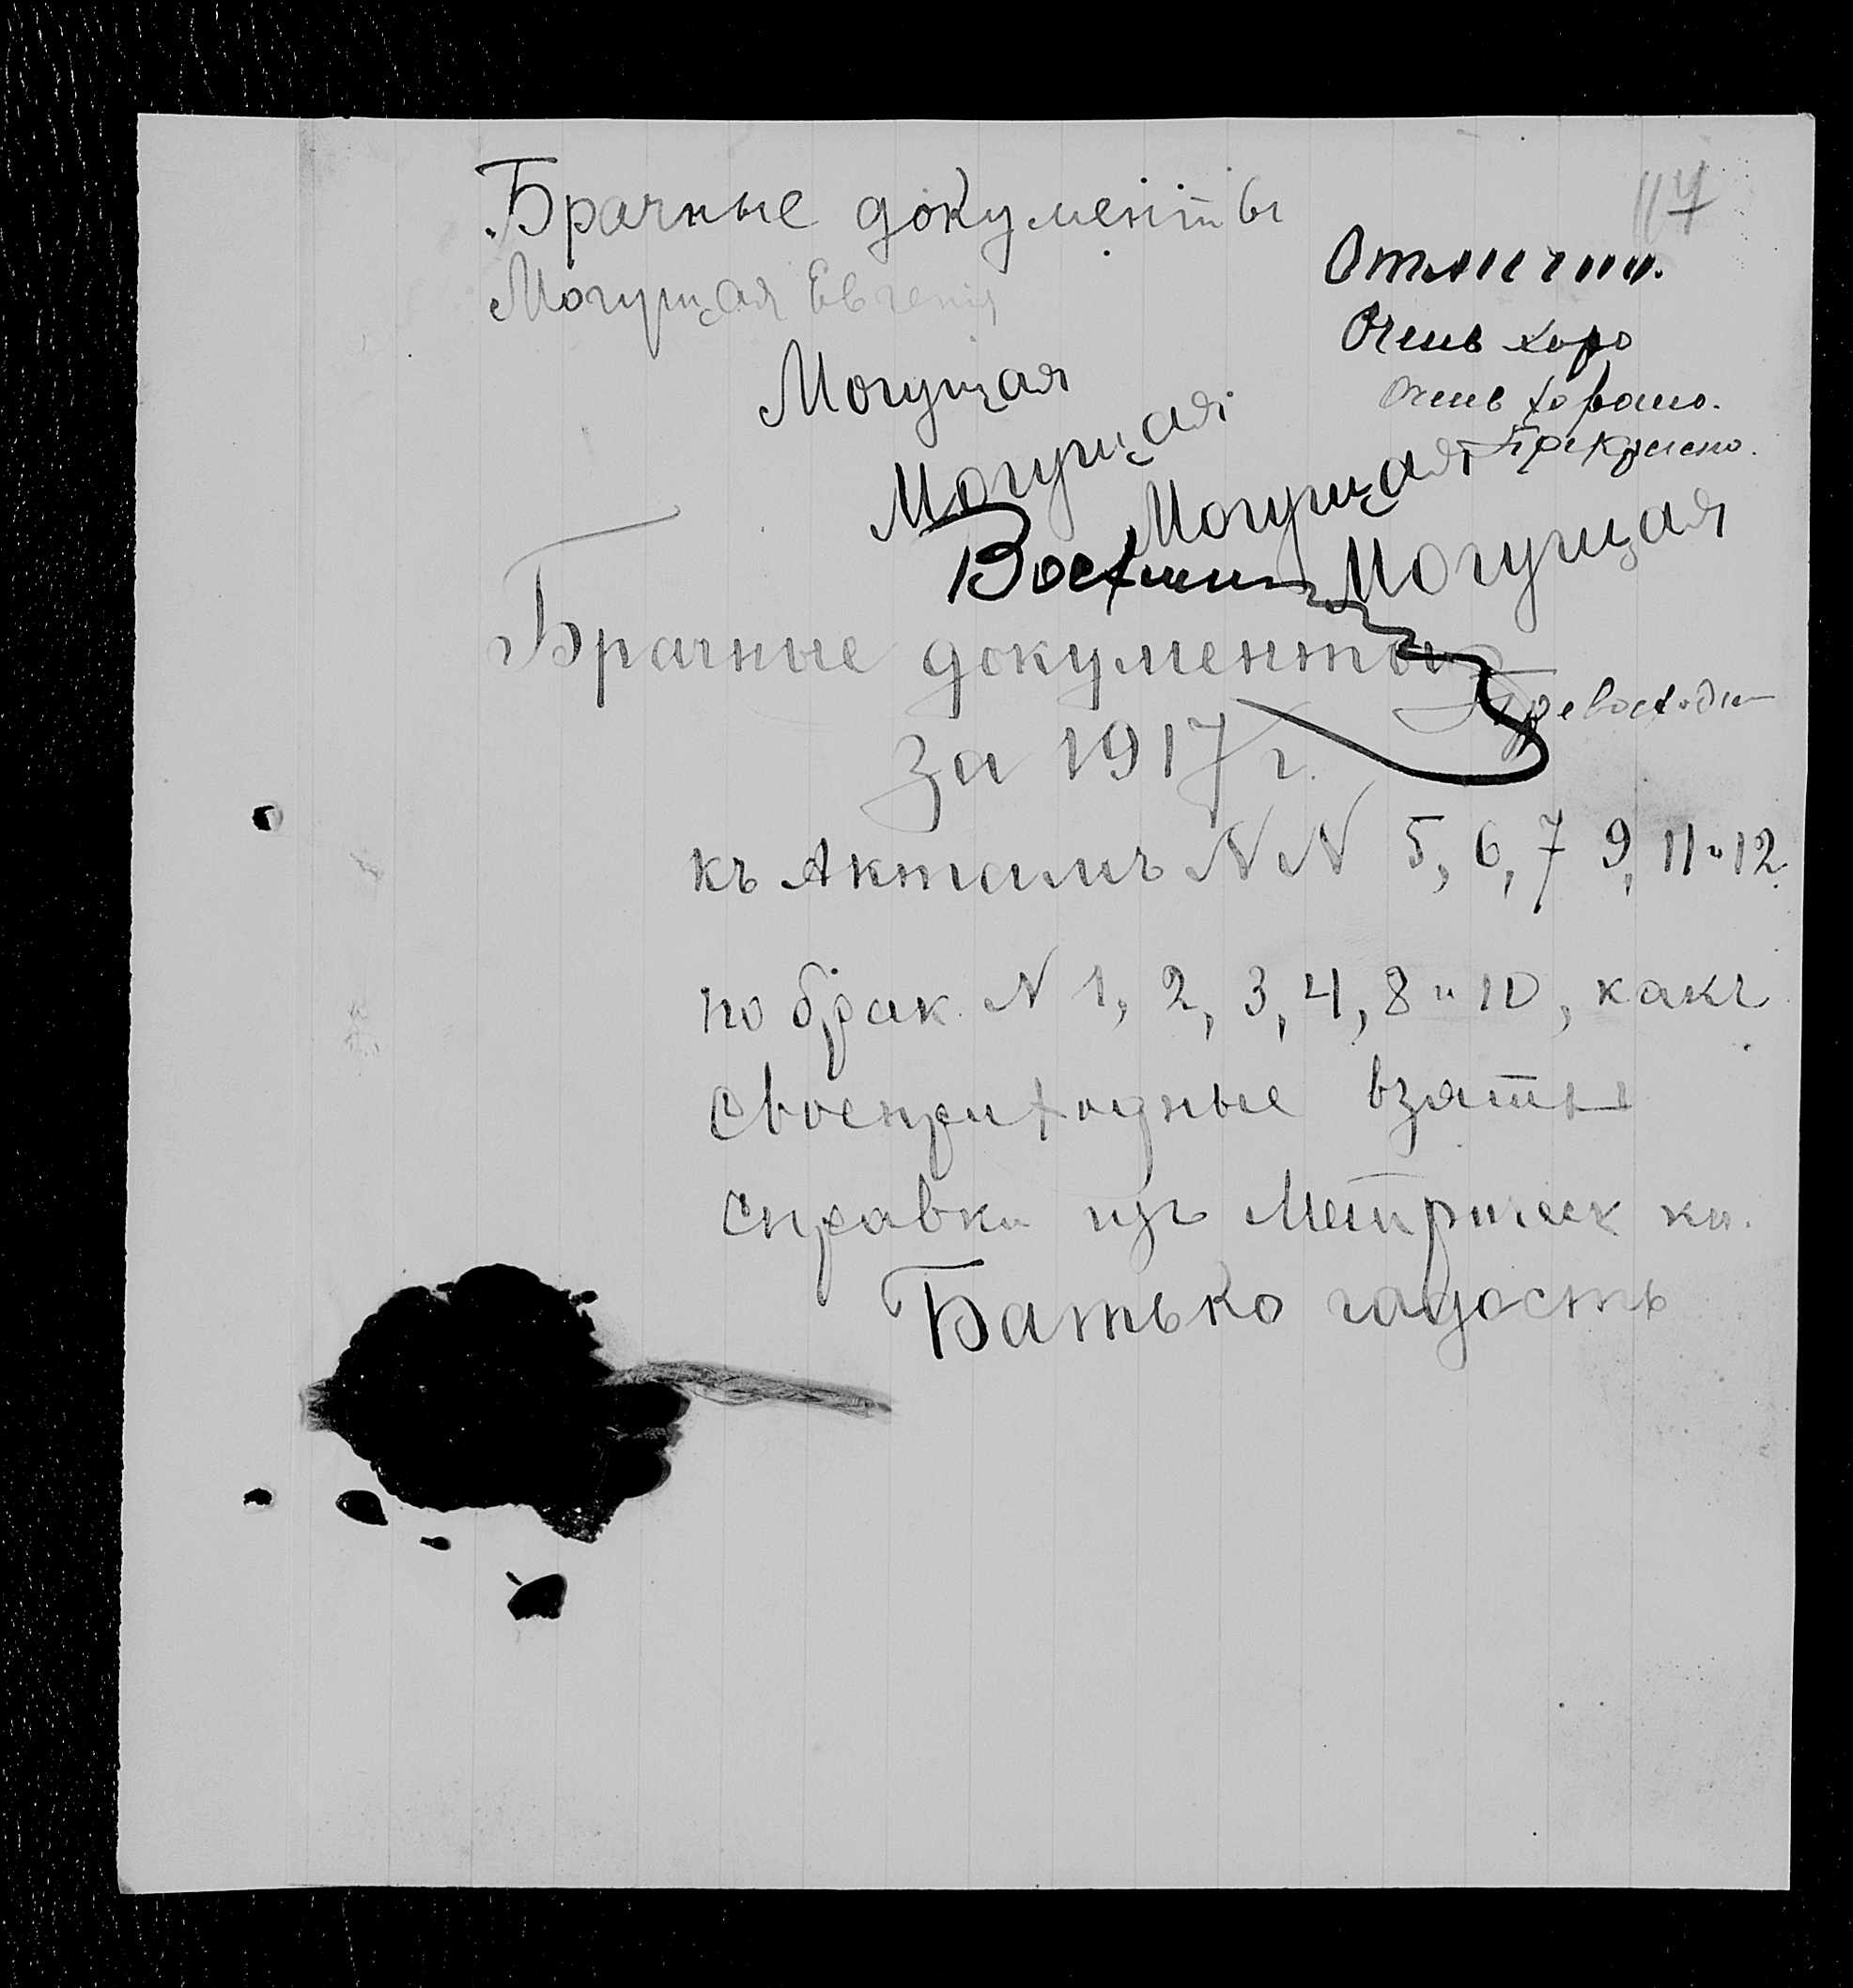 117
Брачные документы
Могущая Евгенія
Отлично.
Очень хоро
Очень хорошо.
Прекрасно.
Могущая
Могущая
Могущая
Могущая
Брачные документы
Превосходн
за 1917 г.
къ Актамъ N N 5, 6, 7 9, 11 и 12.
по брак. N 1, 2, 3, 4, 8 и 10, какъ
своеприходные взяты
справки изъ Метрическ кн.
Батько гадость